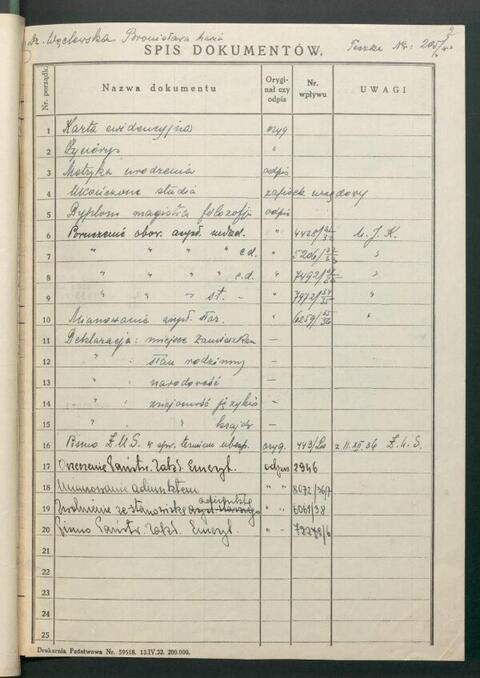 Dr. Węclewska Bronisława Maria
2
SPIS DOKUMENTÓW.
Teczka Nr: 205/
Nr. porządk.
Nazwa dokumentu
Orygi-
nał czy
odpis
Nr.
wpływu
UWAGI
1 Karta ewidencyjna oryg
2 Życiorys "
3 Metryka urodzenia odpis
4 Ukończone studia zapisek urzędowy
5 Dyplom magistra filozofji odpis
6 Poruczenie obow. asyst. " 4428/ U. J. K.
7 " " " " c.d. " 5206/ "
8 " " " " c.d. " 7492/ "
9 " " " st. - " 7972/ "
10 Mianowanie asyst. star. " 6259/ "
11 Deklaracja: miejsce zamieszkan —
12 " : stan rodzinny —
13 " : narodowość —
14 " : znajomość języków —
15 " : kraju —
16 Pismo Z.U.S. w spr. ubezp. oryg. 443/ z 11.XII.36 Z.U.S.
17 Orzeczenie Państw. Zakł. Emeryt. odpis 2946
18 Mianowanie adjunktem " " 8072/36/7
19 Zwolnienie ze stanowiska adjunkta " " 6061/38
20 Pismo Państw. Zakł. Emeryt. " - 72278/6
21
22
23
24
25
Drukarnia Państwowa Nr. 59518. 13.IV.32. 200.000.